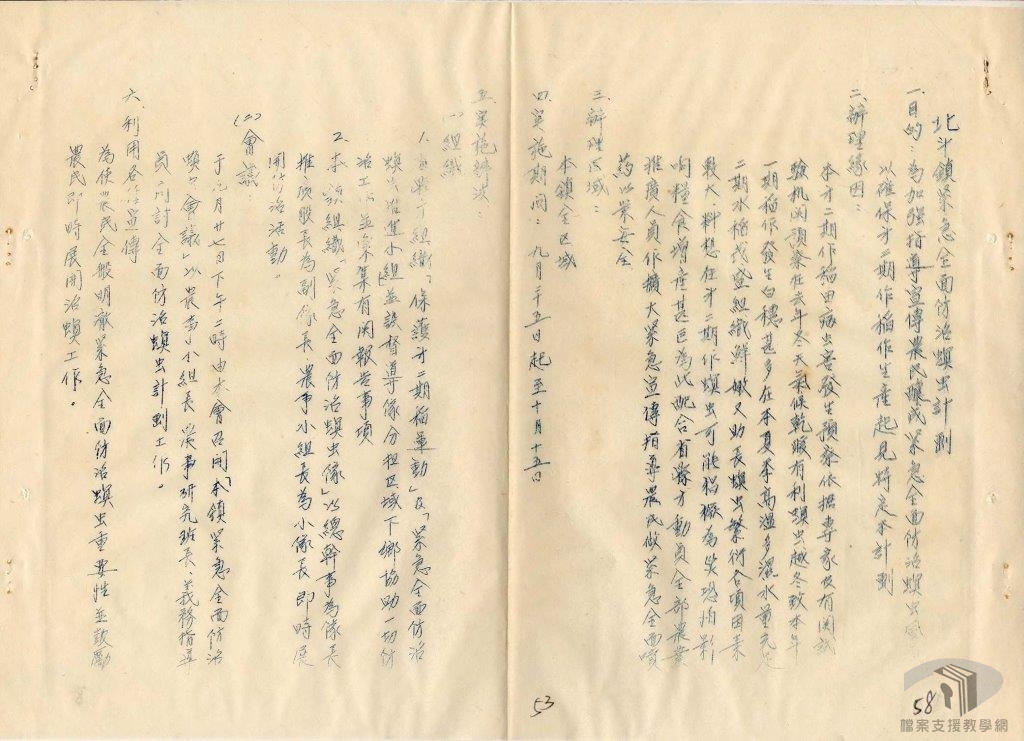 北斗鎮緊急全面防治螟虫計劃
一、目的：為加強指導宣傳農民釀成緊急全面防治螟虫風
以確保才二期作稻作生產起見特定本計劃
二、辦理緣因：
本才二期作稻田病虫害發生預察依據專家及有関試
驗机関預察在去年冬天氣候乾暖有利螟虫越冬致本年
一期稻作發生白穗甚多在本夏季高溫多濕水量充足
二期水稻茂盛組織鮮嫩又助長螟虫繁衍各項因素
較大、料想在才二期作螟虫可能猖獗為災恐怕影
响糧食增產甚巨為此配合省縣才動員全部農業
推廣人員作擴大緊急宣傳指導農民做緊急全面噴
药以策安全
三、辦理区域：
本鎮全区域
四、實施期間：九月二十五日起至十月十五日
五、實施辦法：
(一)組織
1. 組織「保護才二期稻運動」及「緊急全面防治
螟虫推進小組」並設督導係分担区域下鄉協助一切防
治工作並蒐集有関報告事項
2. 本鎮組織「緊急全面防治螟虫隊」以總幹事為隊長
推廣股長為副隊長、農事小組長為小隊長即時展
開防治活動。
(二)會議
于九月廿七日下午二時由本會召開「本鎮緊急全面防治
螟虫會議」以農事小組長、農事研究班長、義務指導
員、討計全面防治螟虫計劃工作。
六、利用各種宣傳
為使農民全般明瞭緊急全面防治螟虫重要性並鼓勵
農民即時展開治螟工作。
53
58
檔案支援教學網